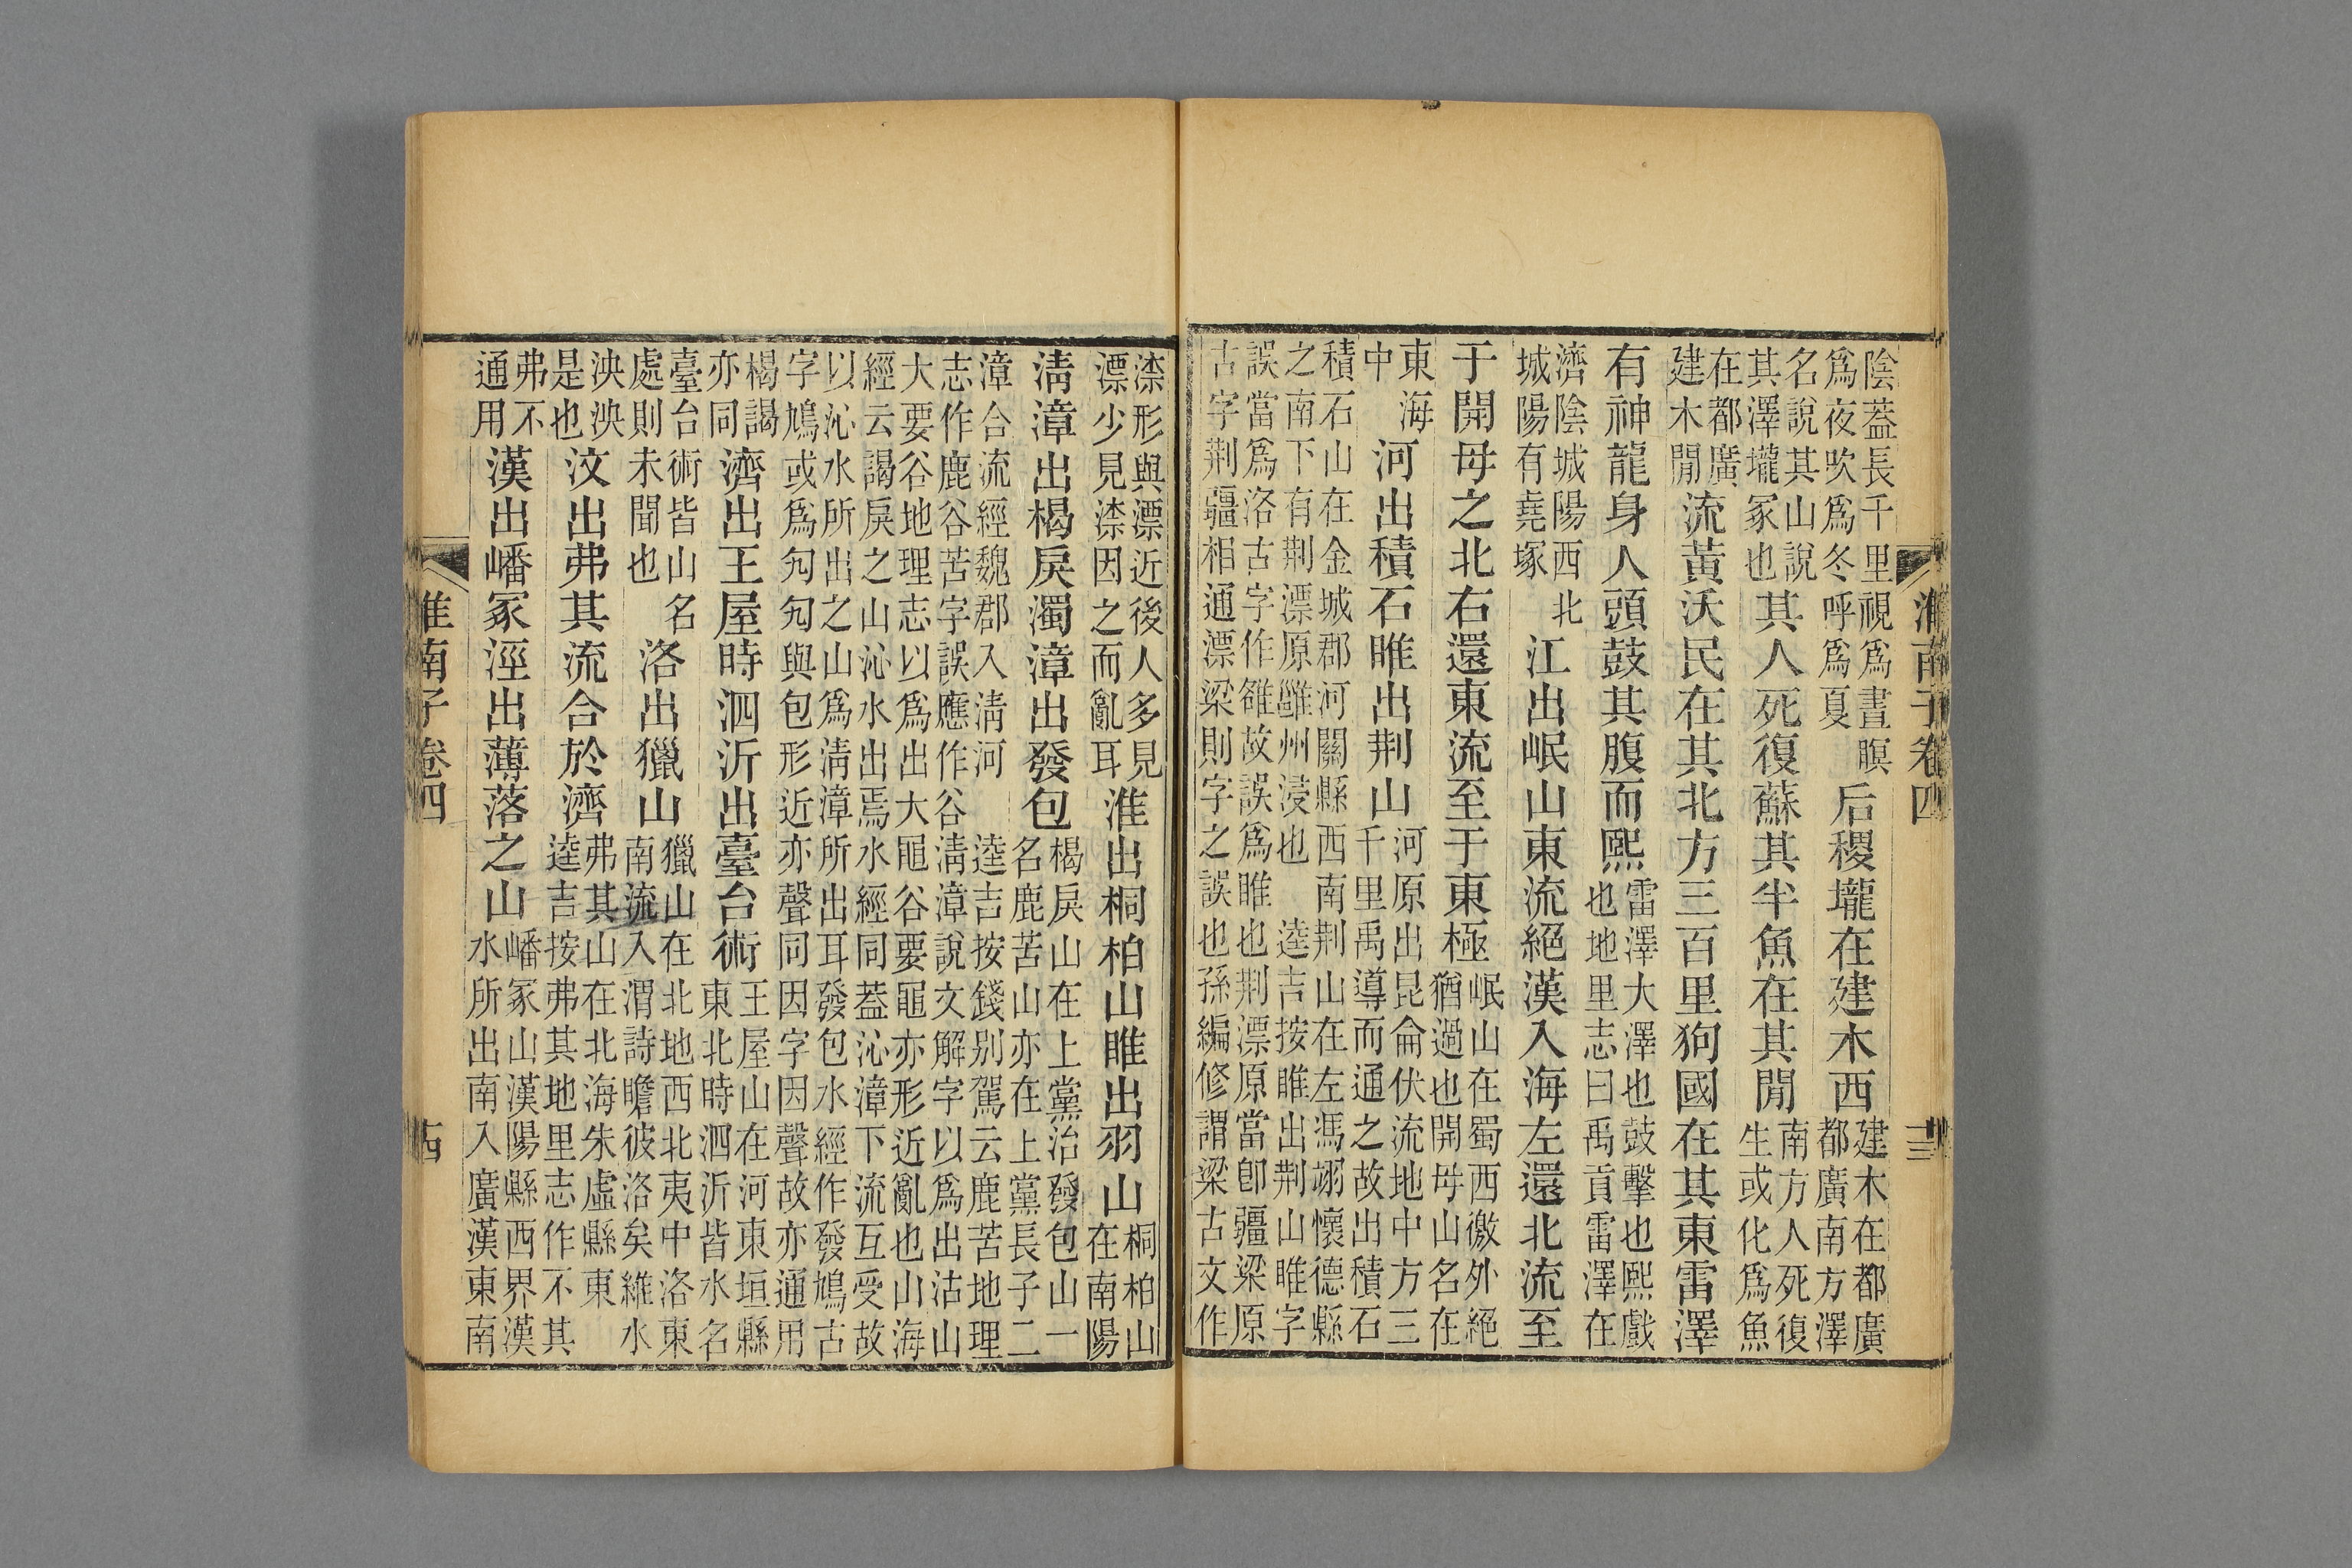 淮南子卷四　十三
陰葢長千里視爲晝瞑
爲夜吹爲冬呼爲夏
后稷壠在建木西
建木在都廣
都廣南方澤
名說其山說
其澤壠冢也
其人死復蘇其半魚在其閒
南方人死復
生或化爲魚
在都廣
建木閒
流黃沃民在其北方三百里狗國在其東雷澤
有神龍身人頭鼓其腹而熙
雷澤大澤也鼓擊也熙戲
也地里志曰禹貢雷澤在
濟陰城陽西北
城陽有堯塚
江出岷山東流絕漢入海左還北流至
于開母之北右還東流至于東極
岷山在蜀西徼外絕
猶過也開母山名在
東海
中
河出積石睢出荆山
河原出昆侖伏流地中方三
千里禹導而通之故出積石
積石山在金城郡河關縣西南荆山在左馮翊懷德縣
之南下有荆漂原雝州浸也　逵吉按睢出荆山睢字
誤當爲洛古字作雒故誤爲睢也荆漂原當卽疆梁原
古字荆疆相通漂梁則字之誤也孫編修謂梁古文作
渿形與漂近後人多見
漂少見渿因之而亂耳
淮出桐柏山睢出羽山
桐柏山
在南陽
淸漳出楬戾濁漳出發包
楬戾山在上黨治發包山一
名鹿苦山亦在上黨長子二
漳合流經魏郡入淸河　逵吉按錢别駕云鹿苦地理
志作鹿谷苦字誤應作谷淸漳說文解字以爲出沽山
大要谷地理志以爲出大黽谷要黽亦形近亂也山海
經云謁戾之山沁水出焉水經同葢沁漳下流互受故
以沁水所出之山爲淸漳所出耳發包水經作發鳩古
字鳩或爲勼勼與包形近亦聲同因字因聲故亦通用
楬謁
亦同
濟出王屋時泗沂出臺台術
王屋山在河東垣縣
東北時泗沂皆水名
臺台術皆山名
處則未聞也
洛出獵山
獵山在北地西北夷中洛東
南流入渭詩瞻彼洛矣維水
泱泱
是也
汶出弗其流合於濟
弗其山在北海朱虛縣東
逵吉按弗其地里志作不其
弗不
通用
漢出嶓冢涇出薄落之山
嶓冢山漢陽縣西界漢
水所出南入廣漢東南
淮南子卷四　十四